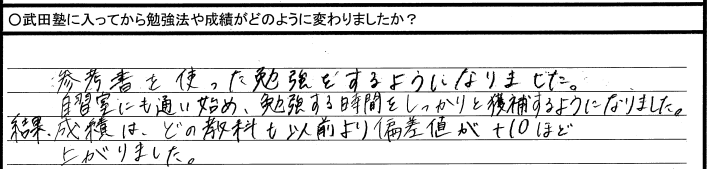 ○武田塾に入ってから勉強法や成績がどのように変わりましたか？
参考書を使った勉強をするようになりました。
自習室にも通い始め、勉強する時間をしっかりと獲補するようになりました。
結果、成績は、どの教科も以前より偏差値が+10ほど
上がりました。